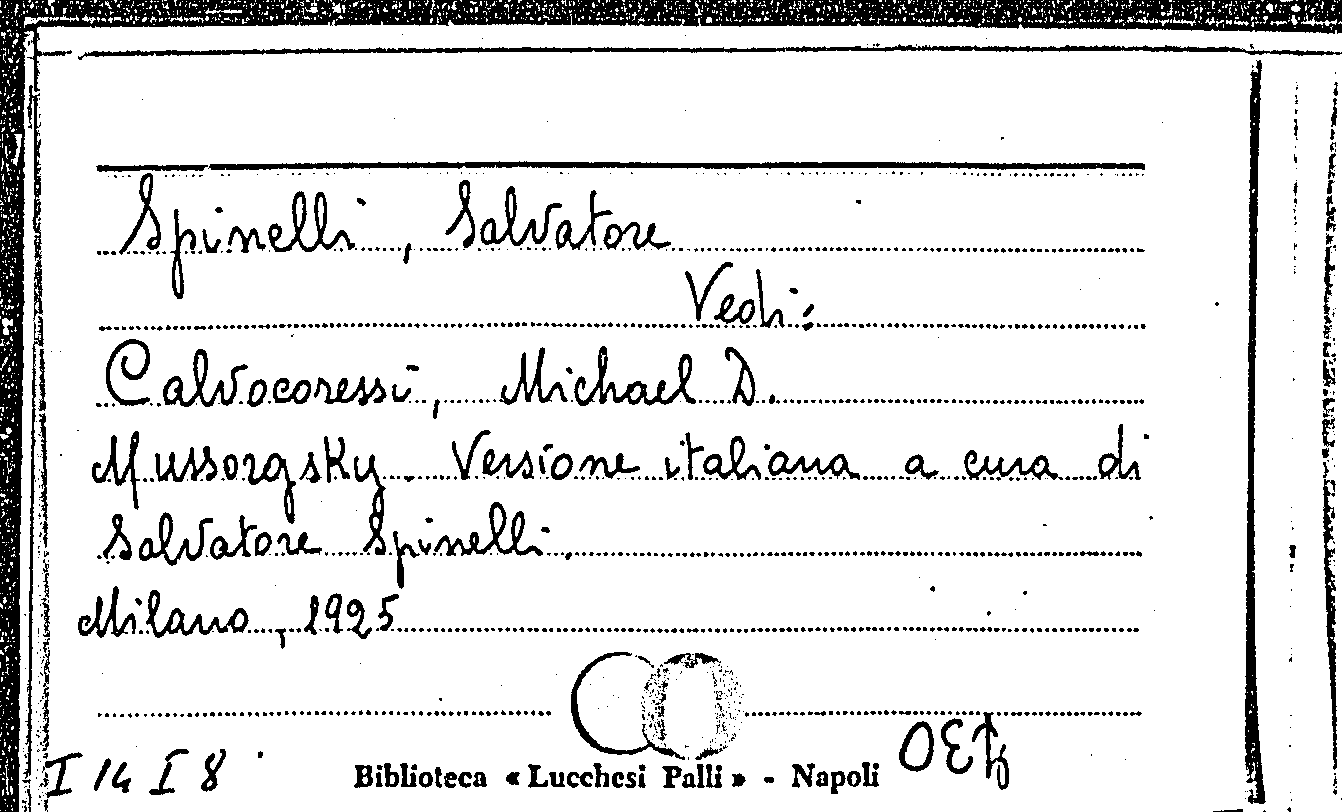 Spinelli, Salvatore
Vedi:
Calvocoressi, Michael D.
Mussorgsky. Versione italiana a cura di
Salvatore Spinelli.
Milano, 1925
I 14 I 8
Biblioteca « Lucchesi Palli » - Napoli